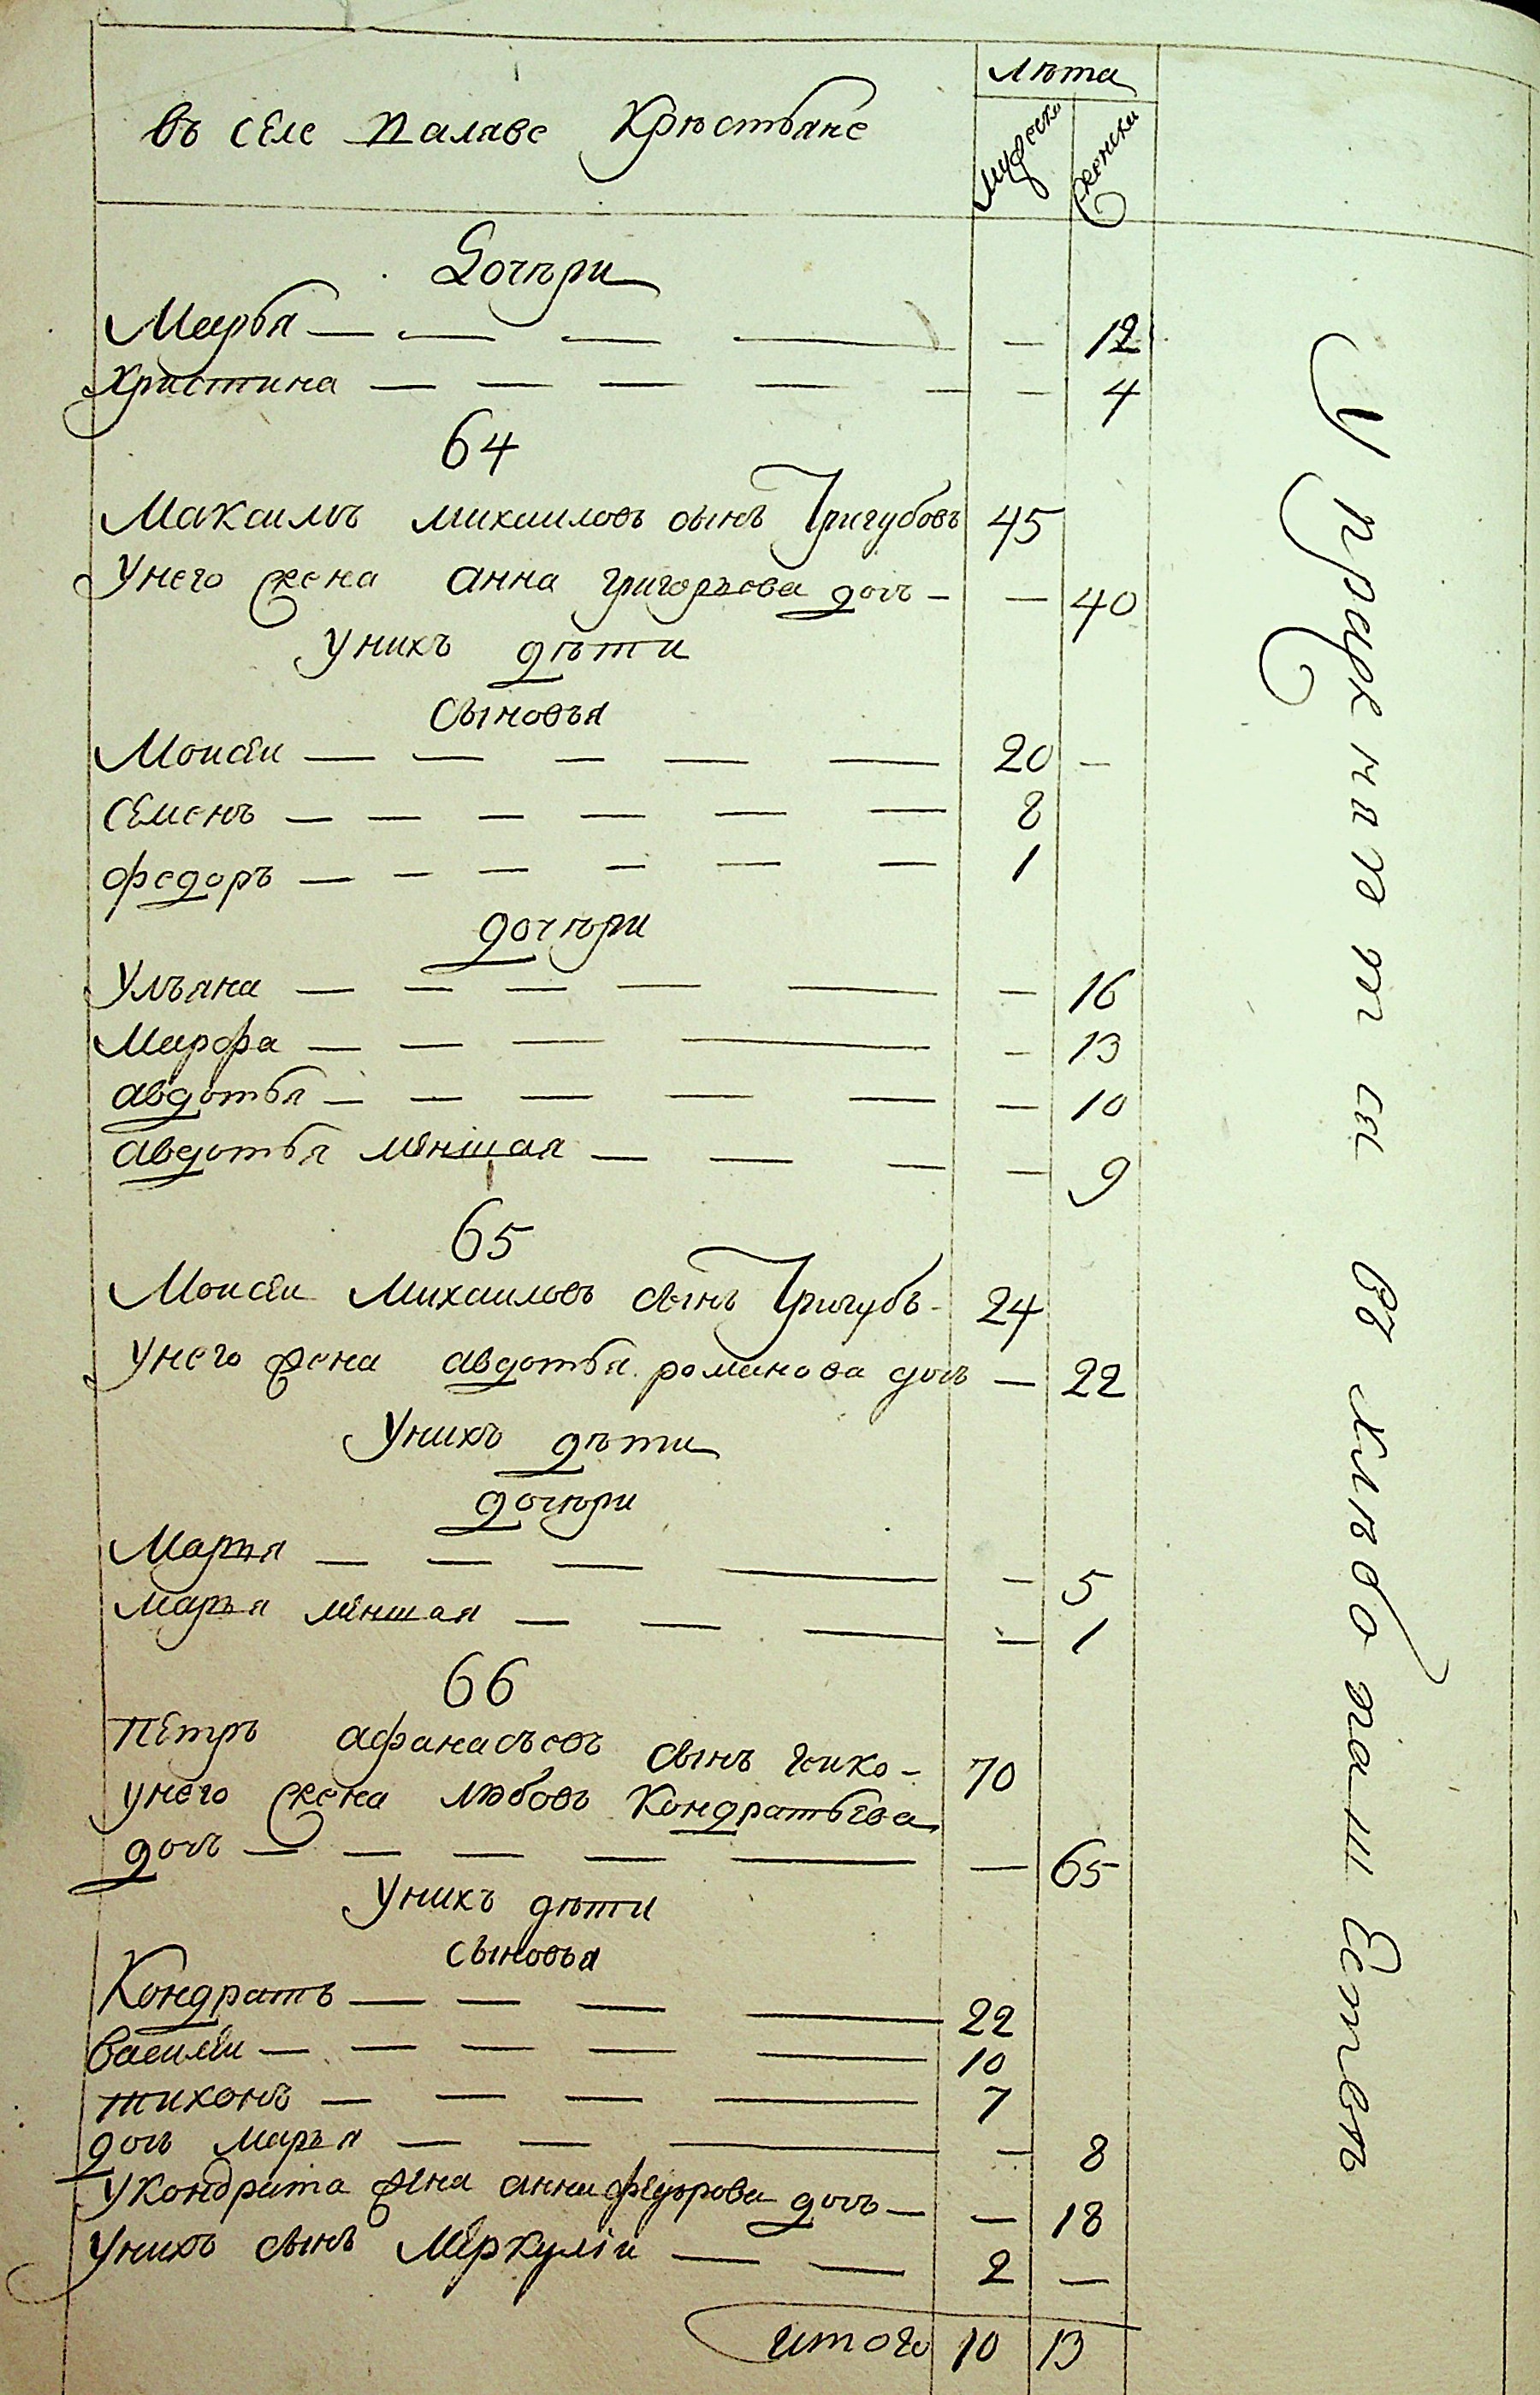 въ селе Палаве Крѣстьяне
Лѣта
мужеска
женска
Дочѣри
Марья — — — — — 12
Христина — — — — — — 4
64
Максимъ Михаиловъ сынъ Тригубовъ 45
Унего жена анна григорьева дочь — — 40
Унихъ дѣти
Сыновья
Моисеи — — — — — 20 —
Семенъ — — — — — — 8
Федоръ — — — — — — 1
дочѣри
Ульяна — — — — — — 16
Марфа — — — — — 13
авдотья — — — — — — 10
авдотья меншая — — — — 9
65
Моисеи Михаиловъ сынъ Тригубъ - 24
Унего жена авдотья романова дочь — 22
Унихъ дѣти
дочѣри
Марья — — — — — 5
Марья меншая — — — — 1
66
Петръ афанасьевъ сынъ - 70
унего жена любовь Кондратьева
дочь — — — — — — 65
Унихъ дѣти
сыновья
Кондратъ — — — — 22
Василеи — — — — — 10
тихонъ — — — — 7
дочь Марья — — — — 8
Укондрата жена анна федорова дочь — — 18
Унихъ сынъ Меркулiи — — 2 —
итого 10 13